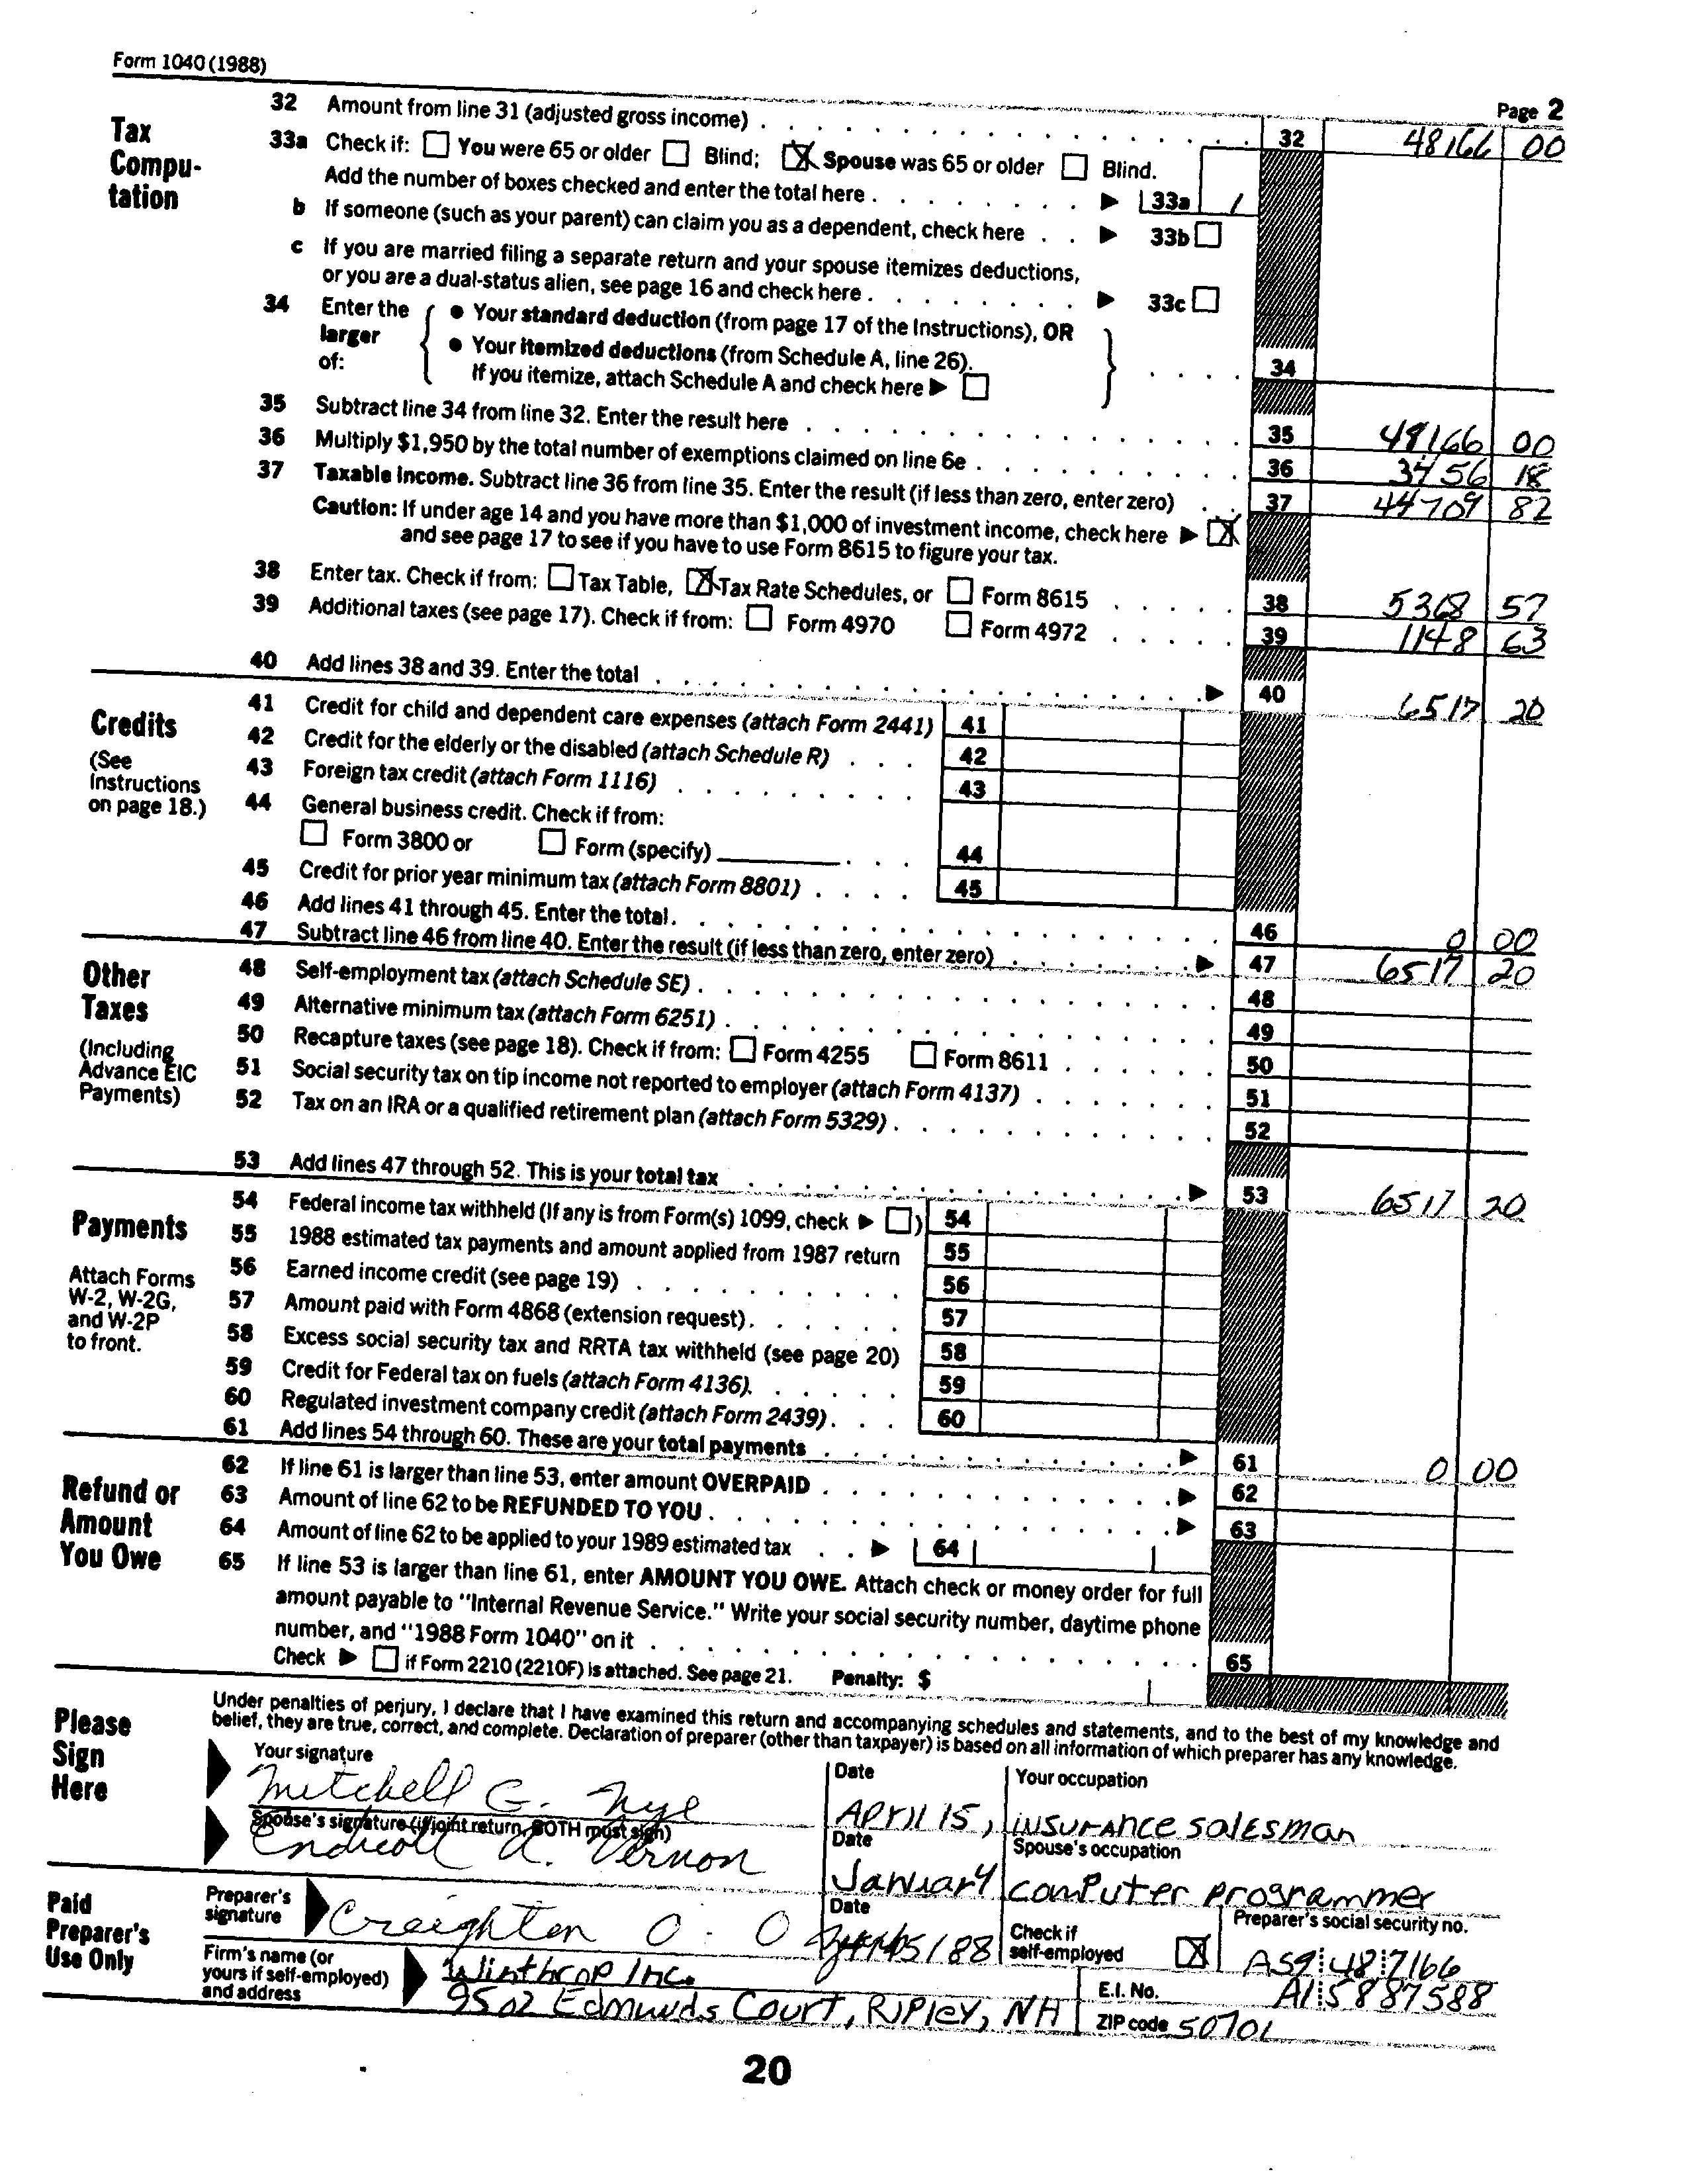 Form 1040 (1988)
Page 2
Tax Compu- tation
32 Amount from line 31 (adjusted gross income) . . . 32 48166 00
33a Check if: You were 65 or older Blind; X Spouse was 65 or older Blind.
Add the number of boxes checked and enter the total here . . . 33a 1
b If someone (such as your parent) can claim you as a dependent, check here . . 33b
c If you are married filing a separate return and your spouse itemizes deductions,
or you are a dual-status alien, see page 16 and check here . . . 33c
34 Enter the larger of: • Your standard deduction (from page 17 of the Instructions), OR
• Your itemized deductions (from Schedule A, line 26).
If you itemize, attach Schedule A and check here 34
35 Subtract line 34 from line 32. Enter the result here . . . 35 48166 00
36 Multiply $1,950 by the total number of exemptions claimed on line 6e . . . 36 3456 18
37 Taxable income. Subtract line 36 from line 35. Enter the result (if less than zero, enter zero) . . 37 44709 82
Caution: If under age 14 and you have more than $1,000 of investment income, check here X
and see page 17 to see if you have to use Form 8615 to figure your tax.
38 Enter tax. Check if from: Tax Table, X Tax Rate Schedules, or Form 8615 . . . 38 5368 57
39 Additional taxes (see page 17). Check if from: Form 4970 Form 4972 . . . 39 1148 63
40 Add lines 38 and 39. Enter the total . . . 40 6517 20
Credits
(See Instructions on page 18.)
41 Credit for child and dependent care expenses (attach Form 2441) 41
42 Credit for the elderly or the disabled (attach Schedule R) . . . 42
43 Foreign tax credit (attach Form 1116) . . . 43
44 General business credit. Check if from:
Form 3800 or Form (specify) . . . 44
45 Credit for prior year minimum tax (attach Form 8801) . . . 45
46 Add lines 41 through 45. Enter the total. . . . 46 0 00
47 Subtract line 46 from line 40. Enter the result (if less than zero, enter zero) . . . 47 6517 20
Other Taxes
(Including Advance EIC Payments)
48 Self-employment tax (attach Schedule SE) . . . 48
49 Alternative minimum tax (attach Form 6251) . . . 49
50 Recapture taxes (see page 18). Check if from: Form 4255 Form 8611 . . . 50
51 Social security tax on tip income not reported to employer (attach Form 4137) . . . 51
52 Tax on an IRA or a qualified retirement plan (attach Form 5329) . . . 52
53 Add lines 47 through 52. This is your total tax . . . 53 6517 20
Payments
Attach Forms W-2, W-2G, and W-2P to front.
54 Federal income tax withheld (If any is from Form(s) 1099, check ) 54
55 1988 estimated tax payments and amount applied from 1987 return 55
56 Earned income credit (see page 19) . . . 56
57 Amount paid with Form 4868 (extension request) . . . 57
58 Excess social security tax and RRTA tax withheld (see page 20) 58
59 Credit for Federal tax on fuels (attach Form 4136). . . . 59
60 Regulated investment company credit (attach Form 2439) . . . 60
61 Add lines 54 through 60. These are your total payments . . . 61 0 00
Refund or Amount You Owe
62 If line 61 is larger than line 53, enter amount OVERPAID . . . 62
63 Amount of line 62 to be REFUNDED TO YOU . . . 63
64 Amount of line 62 to be applied to your 1989 estimated tax . . 64
65 If line 53 is larger than line 61, enter AMOUNT YOU OWE. Attach check or money order for full
amount payable to "Internal Revenue Service." Write your social security number, daytime phone
number, and "1988 Form 1040" on it . . . 65
Check if Form 2210 (2210F) is attached. See page 21. Penalty: $
Please Sign Here
Under penalties of perjury, I declare that I have examined this return and accompanying schedules and statements, and to the best of my knowledge and
belief, they are true, correct, and complete. Declaration of preparer (other than taxpayer) is based on all information of which preparer has any knowledge.
Your signature Date Your occupation
Mitchell G. Nye April 15, insurance salesman
Spouse's signature (if joint return, BOTH must sign) Date Spouse's occupation
Endicott A. Vernon January computer programmer
Paid Preparer's Use Only
Preparer's signature Date Check if self-employed X Preparer's social security no.
Creighton O. O 5/88 AS9 48 7166
Firm's name (or yours if self-employed) and address
Winthrop Inc. E.I. No. A1 5887588
9502 Edmunds Court, Ripley, NH ZIP code 50701
20